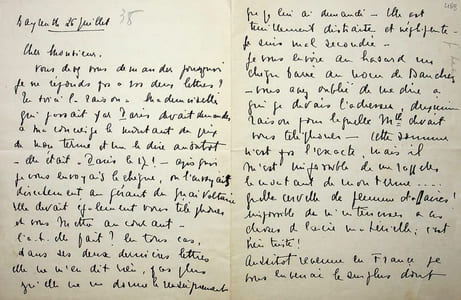 Bayreuth 26 juillet
38
Cher Monsieur,
Vous devez vous demander pourquoi
je ne réponds pas à vos deux lettres?
En voici la raison – Ma demoiselle
qui passait par Paris devait demander
à ma concierge le montant du prix
de mon terme et me le dire aussitôt
– Elle était à Paris le 17! – après quoi
je vous envoyais le chèque, ou l'envoyais
directement au Gérant du quai Voltaire
Elle devait également vous téléphoner
et vous mettre au courant –
l'a-t-elle fait? En tous cas,
dans ses deux dernières lettres
elle ne m'en dit rien, pas plus
qu'elle ne me donne le renseignement
que je lui ai demandé – Elle est
terriblement distraite et négligente –
Je suis mal secondée –
Je vous envoie au hasard un
chèque barré au nom de
– vous avez oublié de me dire à
qui je devais l'adresser, deuxième
raison pour laquelle Mlle devait
vous téléphoner – Cette somme
n'est pas l'exacte, mais il
m'est impossible de me rappeler
le montant de mon terme....
quelle cervelle de
impossible de m'intéresser à ces
choses de la vie matérielle; c'est
bien triste!
Aussitôt revenue en France je
vous enverrai le surplus dont